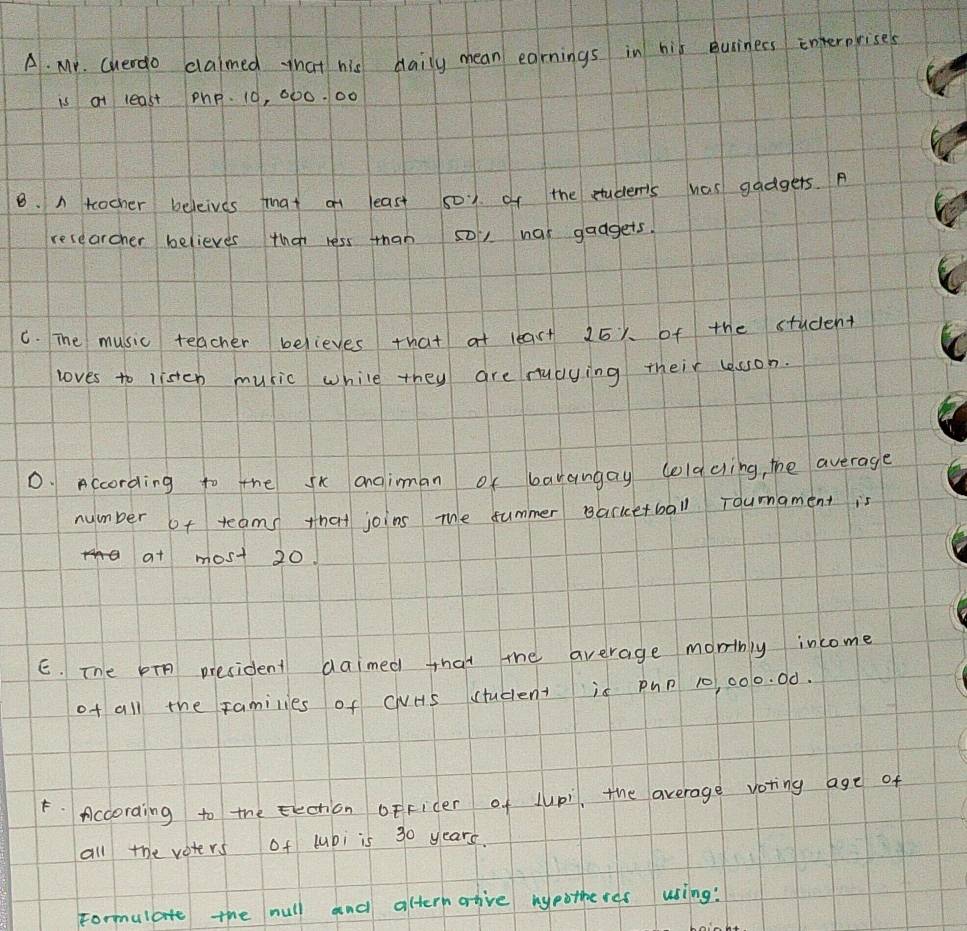 A. Mr. Cuerdo claimed that his daily mean earnings in his Business Enterprises
is at least Php. 10,000.00
B. A teacher beleives that at least 50% of the students has gadgets. A
researcher believes that less than 50% has gadgets.
C. The music teacher believes that at least 25% of the student
loves to listen music while they are studying their lesson.
D. According to the SK chairman of barangay Colacling, the average
number of teams that joins the summer Basketball Tournament is
at most 20.
E. The PTA president claimed that the average monthly income
of all the families of CNHS student is Php 10,000.00.
F. According to the Election Officer of Lupi, the average voting age of
all the voters of Lupi is 30 years.
Formulate the null and alternative hypotheses using: